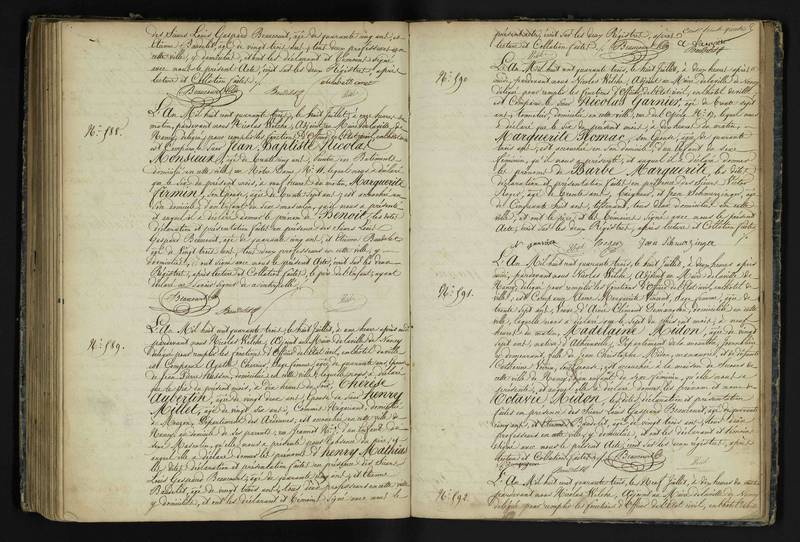 des Sieurs Louis Gaspard Beaucourt, âgé de quarante cinq ans, et
Etienne Baudelot, âgé de vingt trois ans, tous deux professeurs en
cette ville, y domiciliés, et ont les déclarant et témoins signé
avec nous le présent Acte, écrit sur les deux Registres, après
lecture et Collation faite.
Beaucourt
Baudelot
N.° 588.
L'An Mil huit cent quarante trois, le huit Juillet, à onze heures du
matin, pardevant nous Nicolas Welche, Adjoint au Maire de la ville de
Nancy, délégué pour remplir les fonctions d'Officier de l'Etat civil, en l'hôtel de ville
est Comparu le Sieur Jean Baptiste Nicolas
Monsieux, âgé de trente cinq ans, Peintre en Batiments
domicilié en cette ville, rue Notre Dame N.° 11, lequel nous a déclaré
que le Six du présent mois, à neuf heures du matin, Marguerite
Firmin, son Epouse, âgée de trente sept ans, est accouchée en
son domicile d'un Enfant du sexe masculin, qu'il nous a présenté
et auquel il a déclaré donner le prénom de Benoit, les dites
déclaration et présentation faites en présence des Sieurs Louis
Gaspard Beaucourt, âgé de quarante cinq ans, et Etienne Baudelot,
âgé de vingt trois ans, tous deux professeurs en cette ville, y
domiciliés, et ont signé avec nous le présent Acte, écrit sur les deux
Registres, après lecture et Collation faite, le père de l'Enfant, ayant
déclaré ne savoir signer de ce interpellé.
Beaucourt
Baudelot
N.° 589.
L'An Mil huit cent quarante trois, le huit Juillet, à une heure après midi
pardevant nous Nicolas Welche, Adjoint au Maire de la ville de Nancy
délégué pour remplir les fonctions d'Officier de l'Etat civil, en l'hôtel de ville
est Comparue Agathe Chenin, Sage femme, âgée de quarante ans, Epouse
de Jean Pierre domiciliée en cette ville, laquelle nous a déclaré
que le Six du présent mois, à dix heures du soir, Thérèse
Aubertin, âgée de vingt deux ans, Epouse du Sieur henry
Millet, âgé de vingt six ans, domicilié
à Mouzon, Département des Ardennes, est accouchée en cette ville de
Nancy, au domicile de ses parents, d'un Enfant du
sexe Masculin, qu'elle nous a présenté pour l'absence du père, et
auquel elle a déclaré donner les prénoms de henry Mathias
les dites déclaration et présentation faites en présence des Sieurs
Louis Gaspard Beaucourt, âgé de quarante cinq ans, et Etienne
Baudelot, âgé de vingt trois ans, tous deux professeurs en cette ville
y domiciliés, et ont les déclarant et témoins signé avec nous le
présent acte, écrit sur les deux Registres, après
lecture et Collation faite.
Beaucourt
Baudelot
N.° 590
L'An Mil huit cent quarante trois, le huit Juillet, à deux heures après
midi, pardevant nous Nicolas Welche, Adjoint au Maire de la ville de Nancy
délégué pour remplir les fonctions d'Officier de l'Etat civil, en l'hôtel de ville
est Comparu le Sieur Nicolas Garnier, âgé de trente sept
ans, domicilié en cette ville, rue de l' N.° 17, lequel nous
a déclaré que le Six du présent mois, à dix heures du matin,
Marguerite Thomas, son Epouse, âgée de quarante
trois ans, est accouchée en son domicile d'un Enfant du sexe
féminin, qu'il nous a présenté, et auquel il a déclaré donner
les prénoms de Barbe Marguerite, les dites
déclaration et présentation faites en présence des Sieurs Victor
âgé de trente ans, et Jean Schwarzinger, âgé
de Cinquante huit ans, tous deux domiciliés en cette
ville, et ont le père et les témoins signé avec nous le présent
Acte, écrit sur les deux Registres, après lecture et Collation faite.
N garnier
Jean Schwarzinger
N.° 591.
L'An Mil huit cent quarante trois, le huit Juillet, à deux heures après
midi, pardevant nous Nicolas Welche, Adjoint au Maire de la ville de
Nancy, délégué pour remplir les fonctions d'Officier de l'Etat civil, en l'hôtel de
ville, est Comparue Anne Marguerite Vincent, Sage femme, âgée de
trente sept ans, Veuve d'Aimé Clément Demange, domiciliée en cette
ville, laquelle nous a déclaré que le Sept du présent mois, à neuf
heures du matin, Madelaine Midon, âgée de vingt
sept ans, native d'Athienville, Département de la meurthe, journalière
y demeurant, fille de Jean Christophe Midon, manœuvre, et de défunte
Catherine est accouchée à la maison de Secours de
cette ville de Nancy d'un enfant du sexe féminin, qu'elle nous a
présenté, et auquel elle a déclaré donner les prénom et nom de
Octavie Midon, les dites déclaration et présentation
faites en présence des Sieurs Louis Gaspard Beaucourt, âgé de quarante
cinq ans, et Etienne Baudelot, âgé de vingt trois ans, tous deux
professeurs en cette ville, y domiciliés, et ont les déclarant et témoins
signé avec nous le présent Acte, écrit sur les deux registres, après
lecture et Collation faite.
Beaucourt
Baudelot
N.° 592
L'An Mil huit cent quarante trois, le Neuf Juillet, à dix heures du matin
pardevant nous Nicolas Welche, Adjoint au Maire de la ville de Nancy
délégué pour remplir les fonctions d'Officier de l'Etat civil, en l'hôtel de ville